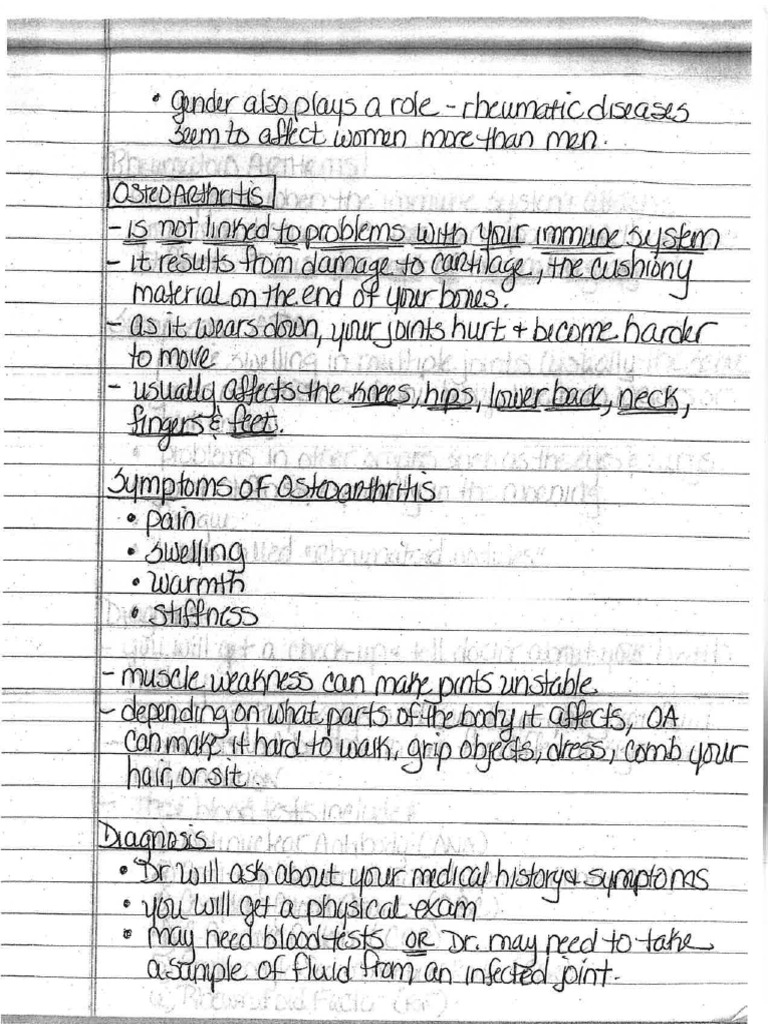 • gender also plays a role - rheumatic diseases
seem to affect women more than men.
OSTEOARTHRITIS
- is not linked to problems with your immune system
- it results from damage to cartilage, the cushiony
material on the end of your bones.
- as it wears down, your joints hurt & become harder
to move
- usually affects the knees, hips, lower back, neck,
fingers & feet.
Symptoms of Osteoarthritis
• pain
• swelling
• warmth
• stiffness
- muscle weakness can make joints unstable
- depending on what parts of the body it affects, OA
can make it hard to walk, grip objects, dress, comb your
hair, or sit.
Diagnosis
• Dr will ask about your medical history & symptoms
• you will get a physical exam
• may need blood tests OR Dr. may need to take
a sample of fluid from an infected joint.